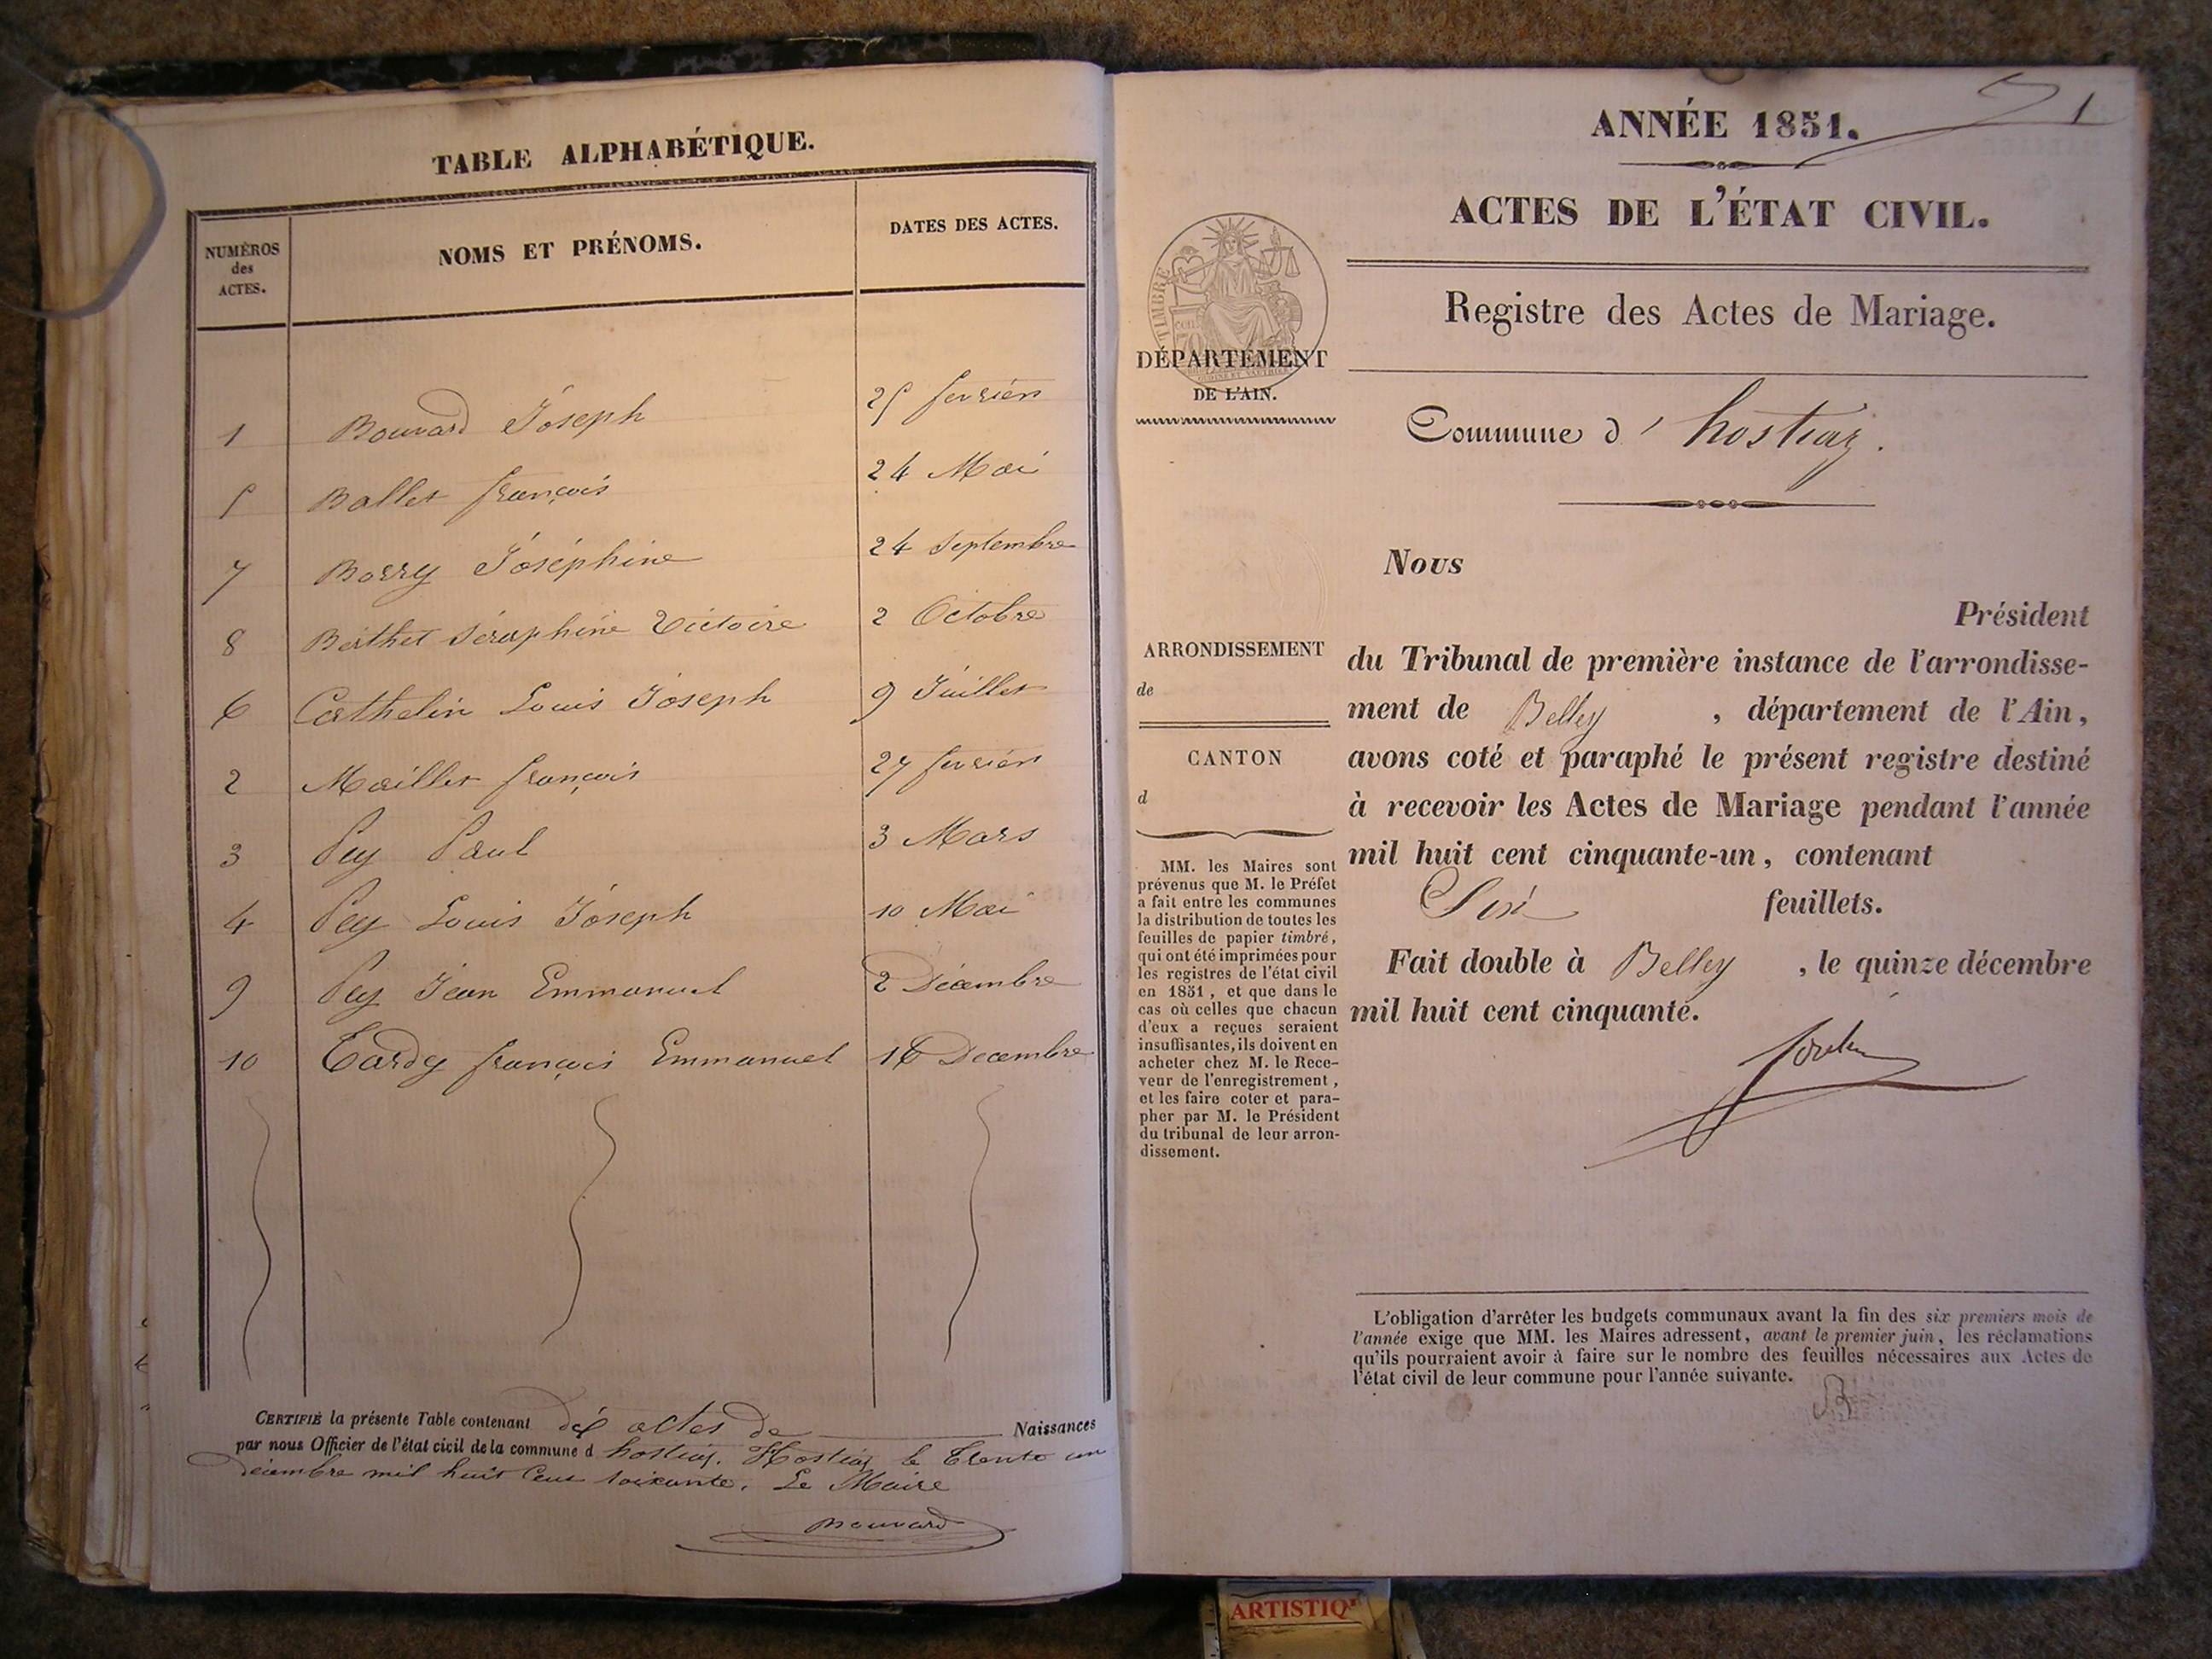 TABLE ALPHABÉTIQUE.
NUMÉROS
des
ACTES.
NOMS ET PRÉNOMS.
DATES DES ACTES.
1 Bouvard Joseph 25 fevrier
5 Ballet françois 24 Mai
7 Borry Joséphine 24 Septembre
8 Berthet Séraphine Victoire 2 Octobre
6 Carthelin Louis Joseph 9 Juillet
2 Maillet françois 27 fevrier
3 Pey Paul 3 Mars
4 Pey Louis Joseph 10 Mai
9 Pey Jean Emmanuel 2 Décembre
10 Tardy françois Emmanuel 16 Decembre
CERTIFIÉ la présente Table contenant dix actes de Naissances
par nous Officier de l'état civil de la commune d hostiaz. Hostiaz le trente un
décembre mil huit cent soixante. Le Maire
Bouvard
1
ANNÉE 1851.
ACTES DE L'ÉTAT CIVIL.
Registre des Actes de Mariage.
TIMBRE
DÉPARTEMENT
DE L'AIN.
Commune d' hostiaz.
Nous
Président
ARRONDISSEMENT
de
CANTON
d
du Tribunal de première instance de l'arrondisse-
ment de Belley , département de l'Ain,
avons coté et paraphé le présent registre destiné
à recevoir les Actes de Mariage pendant l'année
mil huit cent cinquante-un, contenant
Six feuillets.
Fait double à Belley , le quinze décembre
mil huit cent cinquante.
MM. les Maires sont
prévenus que M. le Préfet
a fait entre les communes
la distribution de toutes les
feuilles de papier timbré,
qui ont été imprimées pour
les registres de l'état civil
en 1851, et que dans le
cas où celles que chacun
d'eux a reçues seraient
insuffisantes, ils doivent en
acheter chez M. le Rece-
veur de l'enregistrement,
et les faire coter et para-
pher par M. le Président
du tribunal de leur arron-
dissement.
L'obligation d'arrêter les budgets communaux avant la fin des six premiers mois de
l'année exige que MM. les Maires adressent, avant le premier juin, les réclamations
qu'ils pourraient avoir à faire sur le nombre des feuilles nécessaires aux Actes de
l'état civil de leur commune pour l'année suivante.
B
ARTISTIQ